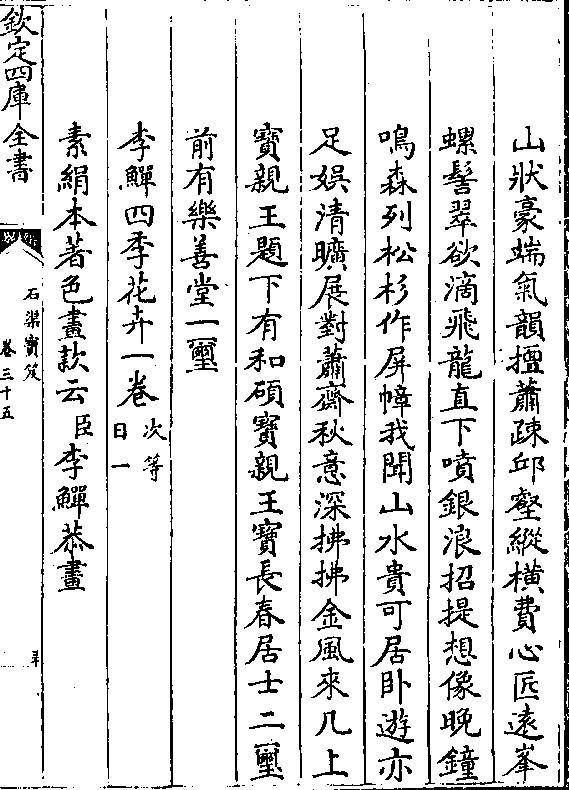 山狀豪端氣韻擅蕭疎邱壑縱横費心匠遠峯
螺髻翠欲滴飛龍直下噴銀浪招提想像晚鐘
鳴森列松杉作屏幛我聞山水貴可居卧遊亦
足娯清曠展對蕭齋秋意深拂拂金風來几上
寶親王題下有和碩寶親王寶長春居士二璽
前有樂善堂一璽
李觶四季花卉一卷次等日一
素絹本著色畫款云臣李觶恭畫
欽定四庫全書
石渠寶笈
卷三十五